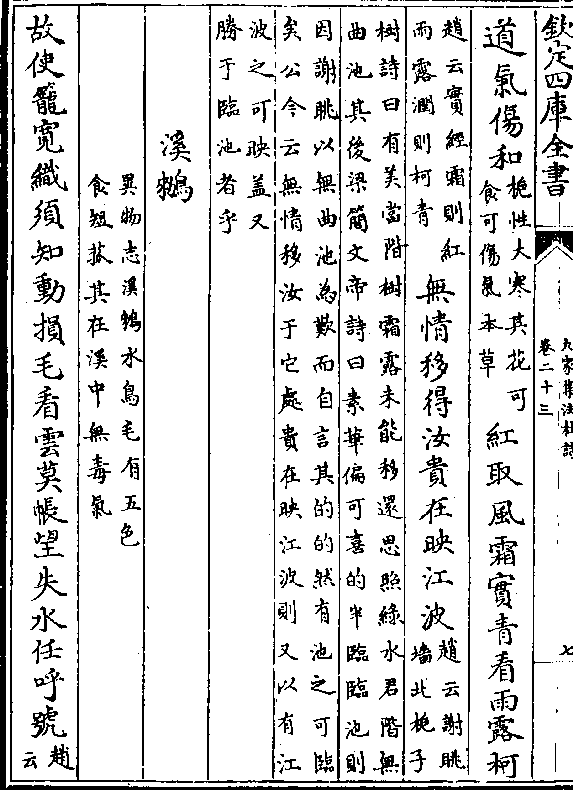 欽定四庫全書
九家集注杜詩
卷二十三
七
道氣傷和
梔性大寒其花可
食可傷氣本草
紅取風霜實青看雨露柯
趙云實經霜則紅
雨露潤則柯青
無情移得汝貴在映江波
趙云謝眺
墻北梔子
樹詩曰有美當階樹霜露未能移還思照綠水君階無
曲池其後梁簡文帝詩曰素華偏可喜的半臨臨池則
因謝眺以無曲池為歎而自言其的的然有池之可臨
矣公今云無情移汝于它處貴在映江波則又以有江
波之可映盖又
勝于臨池者乎
溪鶒
異物志溪鶒水鳥毛有五色
食短菰其在溪中無毒氣
故使籠寛織須知動損毛看雲莫帳望失水任呼號
趙
云